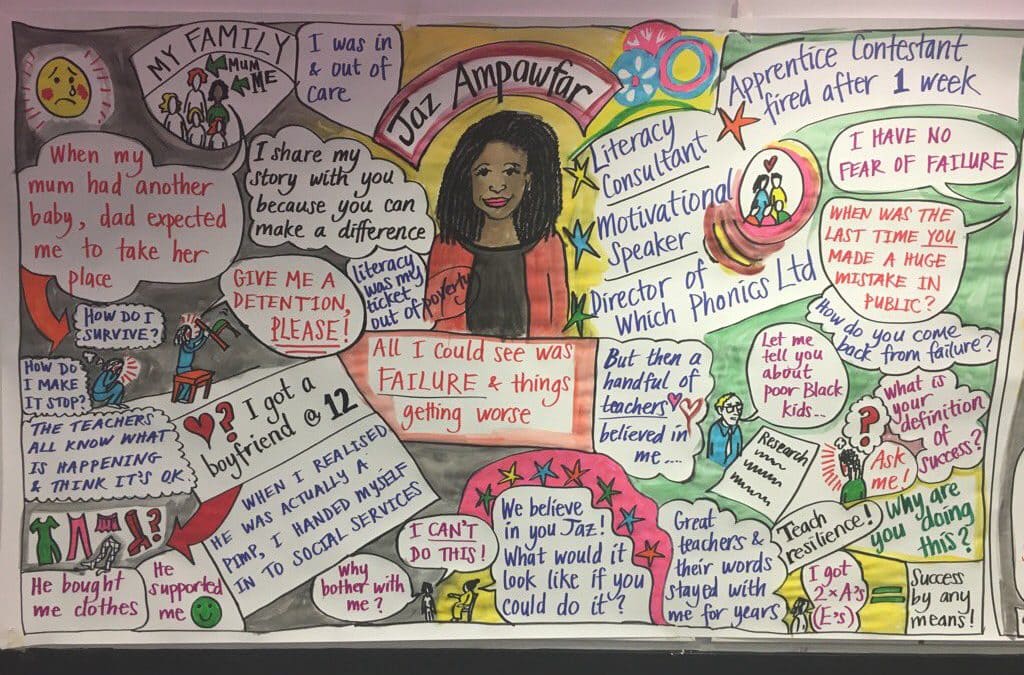 MY FAMILY
MUM
ME
I was in
& out of
care
Jaz Ampawfar
Apprentice Contestant
fired after 1 week
When my
mum had another
baby, dad expected
me to take her
place
I share my
story with you
because you can
make a difference
literacy
was my
ticket
out of poverty
Literacy
Consultant
Motivational
Speaker
Director of
Which Phonics Ltd
I HAVE NO
FEAR OF FAILURE
WHEN WAS THE
LAST TIME YOU
MADE A HUGE
MISTAKE IN
PUBLIC?
How do you come
back from failure?
GIVE ME A
DETENTION,
PLEASE!
HOW DO I
SURVIVE?
HOW DO
I MAKE
IT STOP?
THE TEACHERS
ALL KNOW WHAT
IS HAPPENING
& THINK IT'S OK
All I could see was
FAILURE & things
getting worse
But then a
handful of
teachers
believed in
me....
Let me
tell you
about
poor Black
kids...
Research
?
What is
your
definition
of
success?
Ask
me!
? I got a
boyfriend @ 12
WHEN I REALISED
HE WAS ACTUALLY A
PIMP, I HANDED MYSELF
IN TO SOCIAL SERVICES
?
He bought
me clothes
He
supported
me
Why
bother with
me?
I CAN'T
DO THIS!
We believe
in you Jaz!
What would it
look like if you
could do it?
Great
teachers &
their words
stayed with
me for years
Teach
resilience!
Why are
you doing
this?
I got
2 x A's
(E's)
=
Success
by any
means!